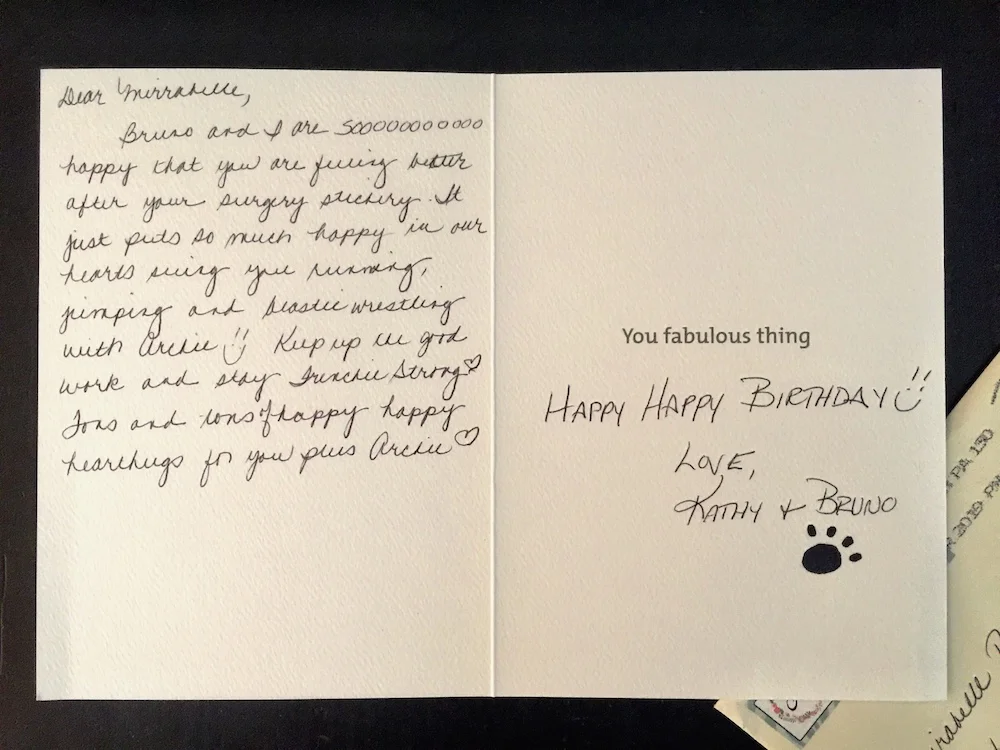 Dear Mirrabelle,
Bruno and I are soooooooooooo
happy that you are feeling better
after your surgery stickery. It
just puts so much happy in our
hearts seeing you running,
jumping and beastie wrestling
with Archie
Keep up the good
work and stay Frenchie Strong
Tons and tons of happy happy
hearthugs for you plus Archie
You fabulous thing
HAPPY HAPPY BIRTHDAY
LOVE,
KATHY + BRUNO
PA 150
2019 PM
irabelle